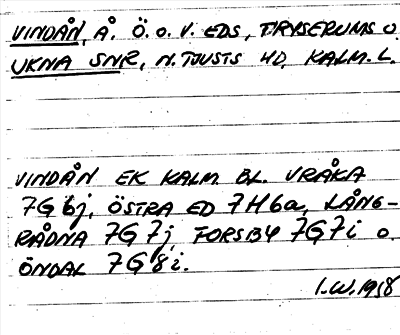 VINDÅN, Å. Ö. o. V. EDS, TRYSERUMS O.
UKNA SNR, N. TJUSTS HD, KALM. L.
VINDÅN EK KALM. BL. VRÅKA
7G 6j, ÖSTRA ED 7H6a, LÅNG-
RÅDNA 7G 7j, FORSBY 7G7i o.
ÖNDAL 7G 8i.
I.W. 1958